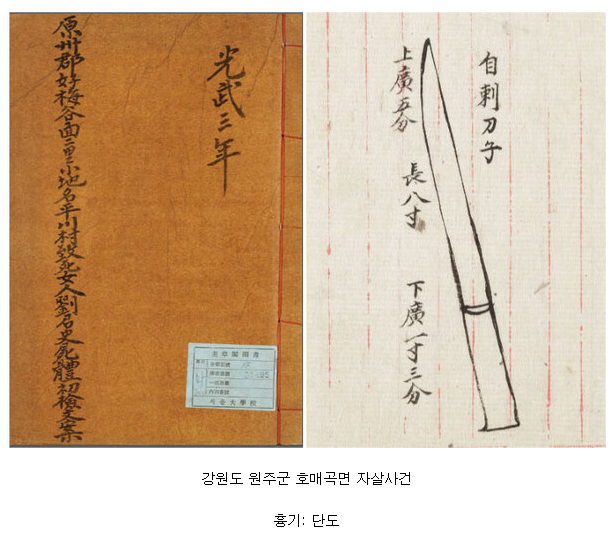 光武三年
原州郡好梅谷面二里小地名平川村致死女人劉召史死體初檢文案
奎章閣圖書
서울大學校
自刺刀子
上廣五分
長八寸
下廣一寸三分
강원도 원주군 호매곡면 자살사건
흉기: 단도